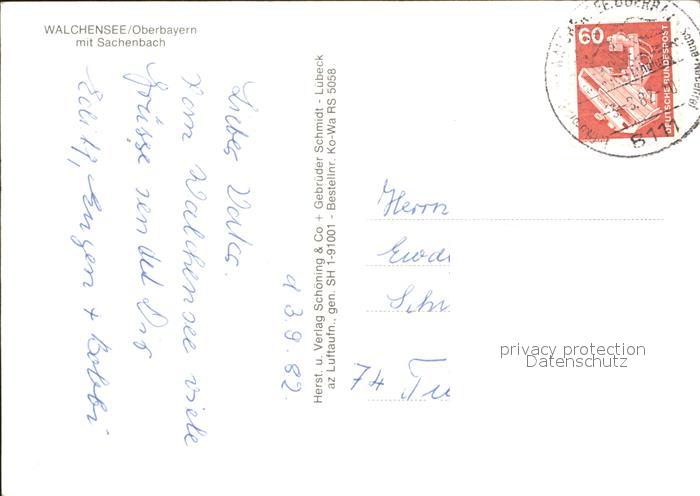 WALCHENSEE/Oberbayern
mit Sachenbach
d 3.9.82.
Liebes Vaters.
Vom Walchensee viele
Grüsse sendet Dir
Edith, Eugen + Bobbi
Herst. u. Verlag Schöning & Co + Gebrüder Schmidt - Lübeck
az Luftaufn., gen. SH 1-91001 - Bestellnr. Ko-Wa RS 5058
60
DEUTSCHE BUNDESPOST
8111
Herrn
74
privacy protection
Datenschutz